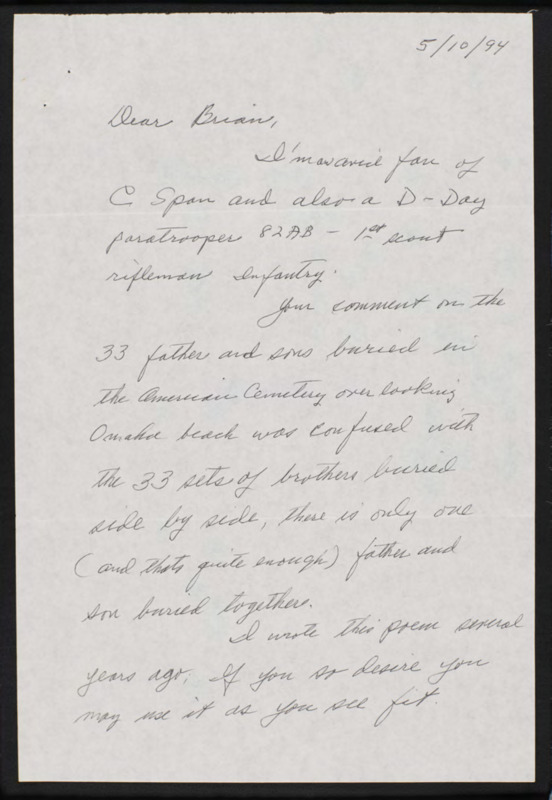 5/10/94
Dear Brian,
I'm avid fan of
C Span and also a D-Day
paratrooper 82AB - 1st scout
rifleman Infantry.
Your comment on the
33 father and sons buried in
the American Cemetery over looking
Omaha beach was confused with
the 33 sets of brothers buried
side by side, there is only one
(and thats quite enough) father and
son buried together.
I wrote this poem several
years ago; If you so desire you
may use it as you see fit.